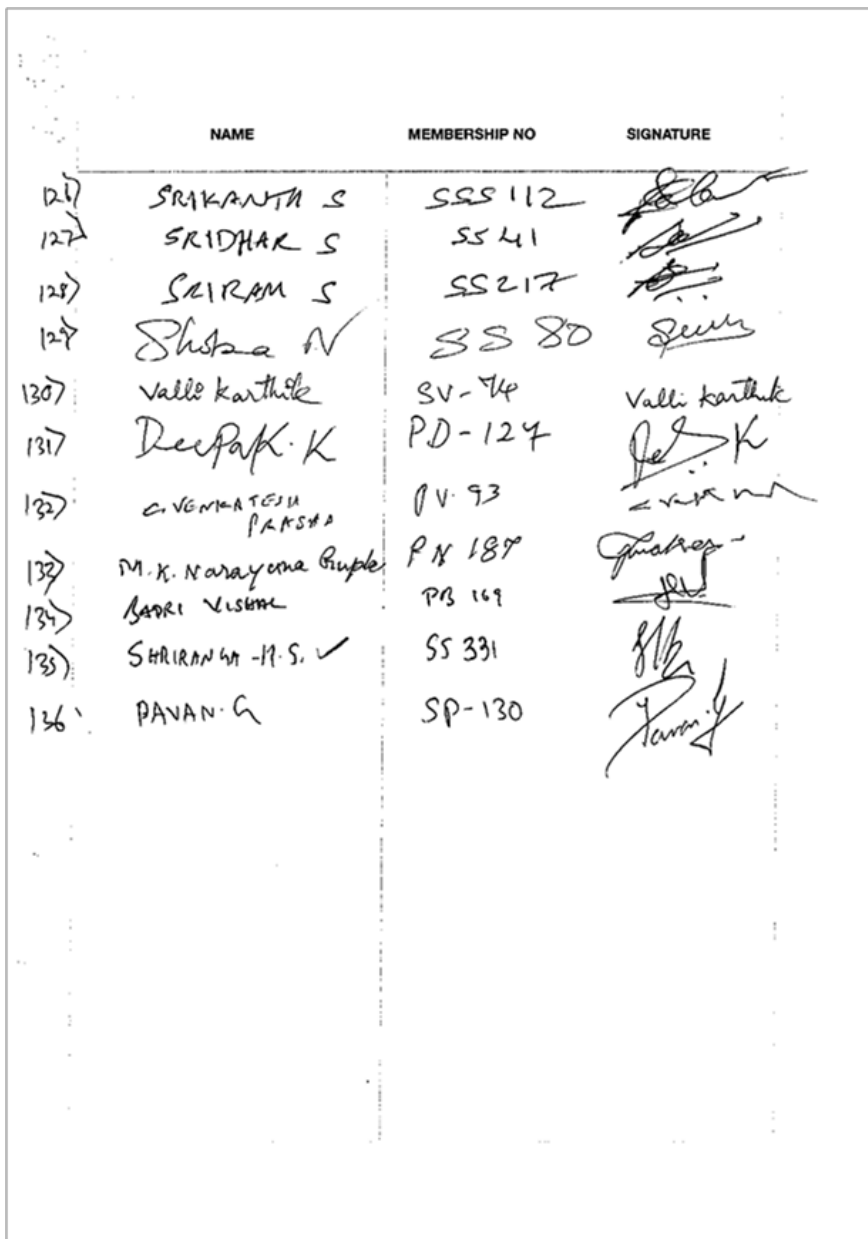 NAME MEMBERSHIP NO SIGNATURE
126) SRIKANTH S SSS 112
127) SRIDHAR S SS 41
128) SRIRAM S SS217
129) Shobza N SS 80
130) Valli Karthik SV-74 Valli Karthik
131) DeePaK. K PD-127
132) C. VENKATESH PV. 93
PRASHD
133) M.K. Narayana Gupta PN 187
134) BADRI VISHAL PB 169
135) SHRIRANGA -H.S. ✓ SS 331
136 PAVAN. G SP-130 Pavan. G